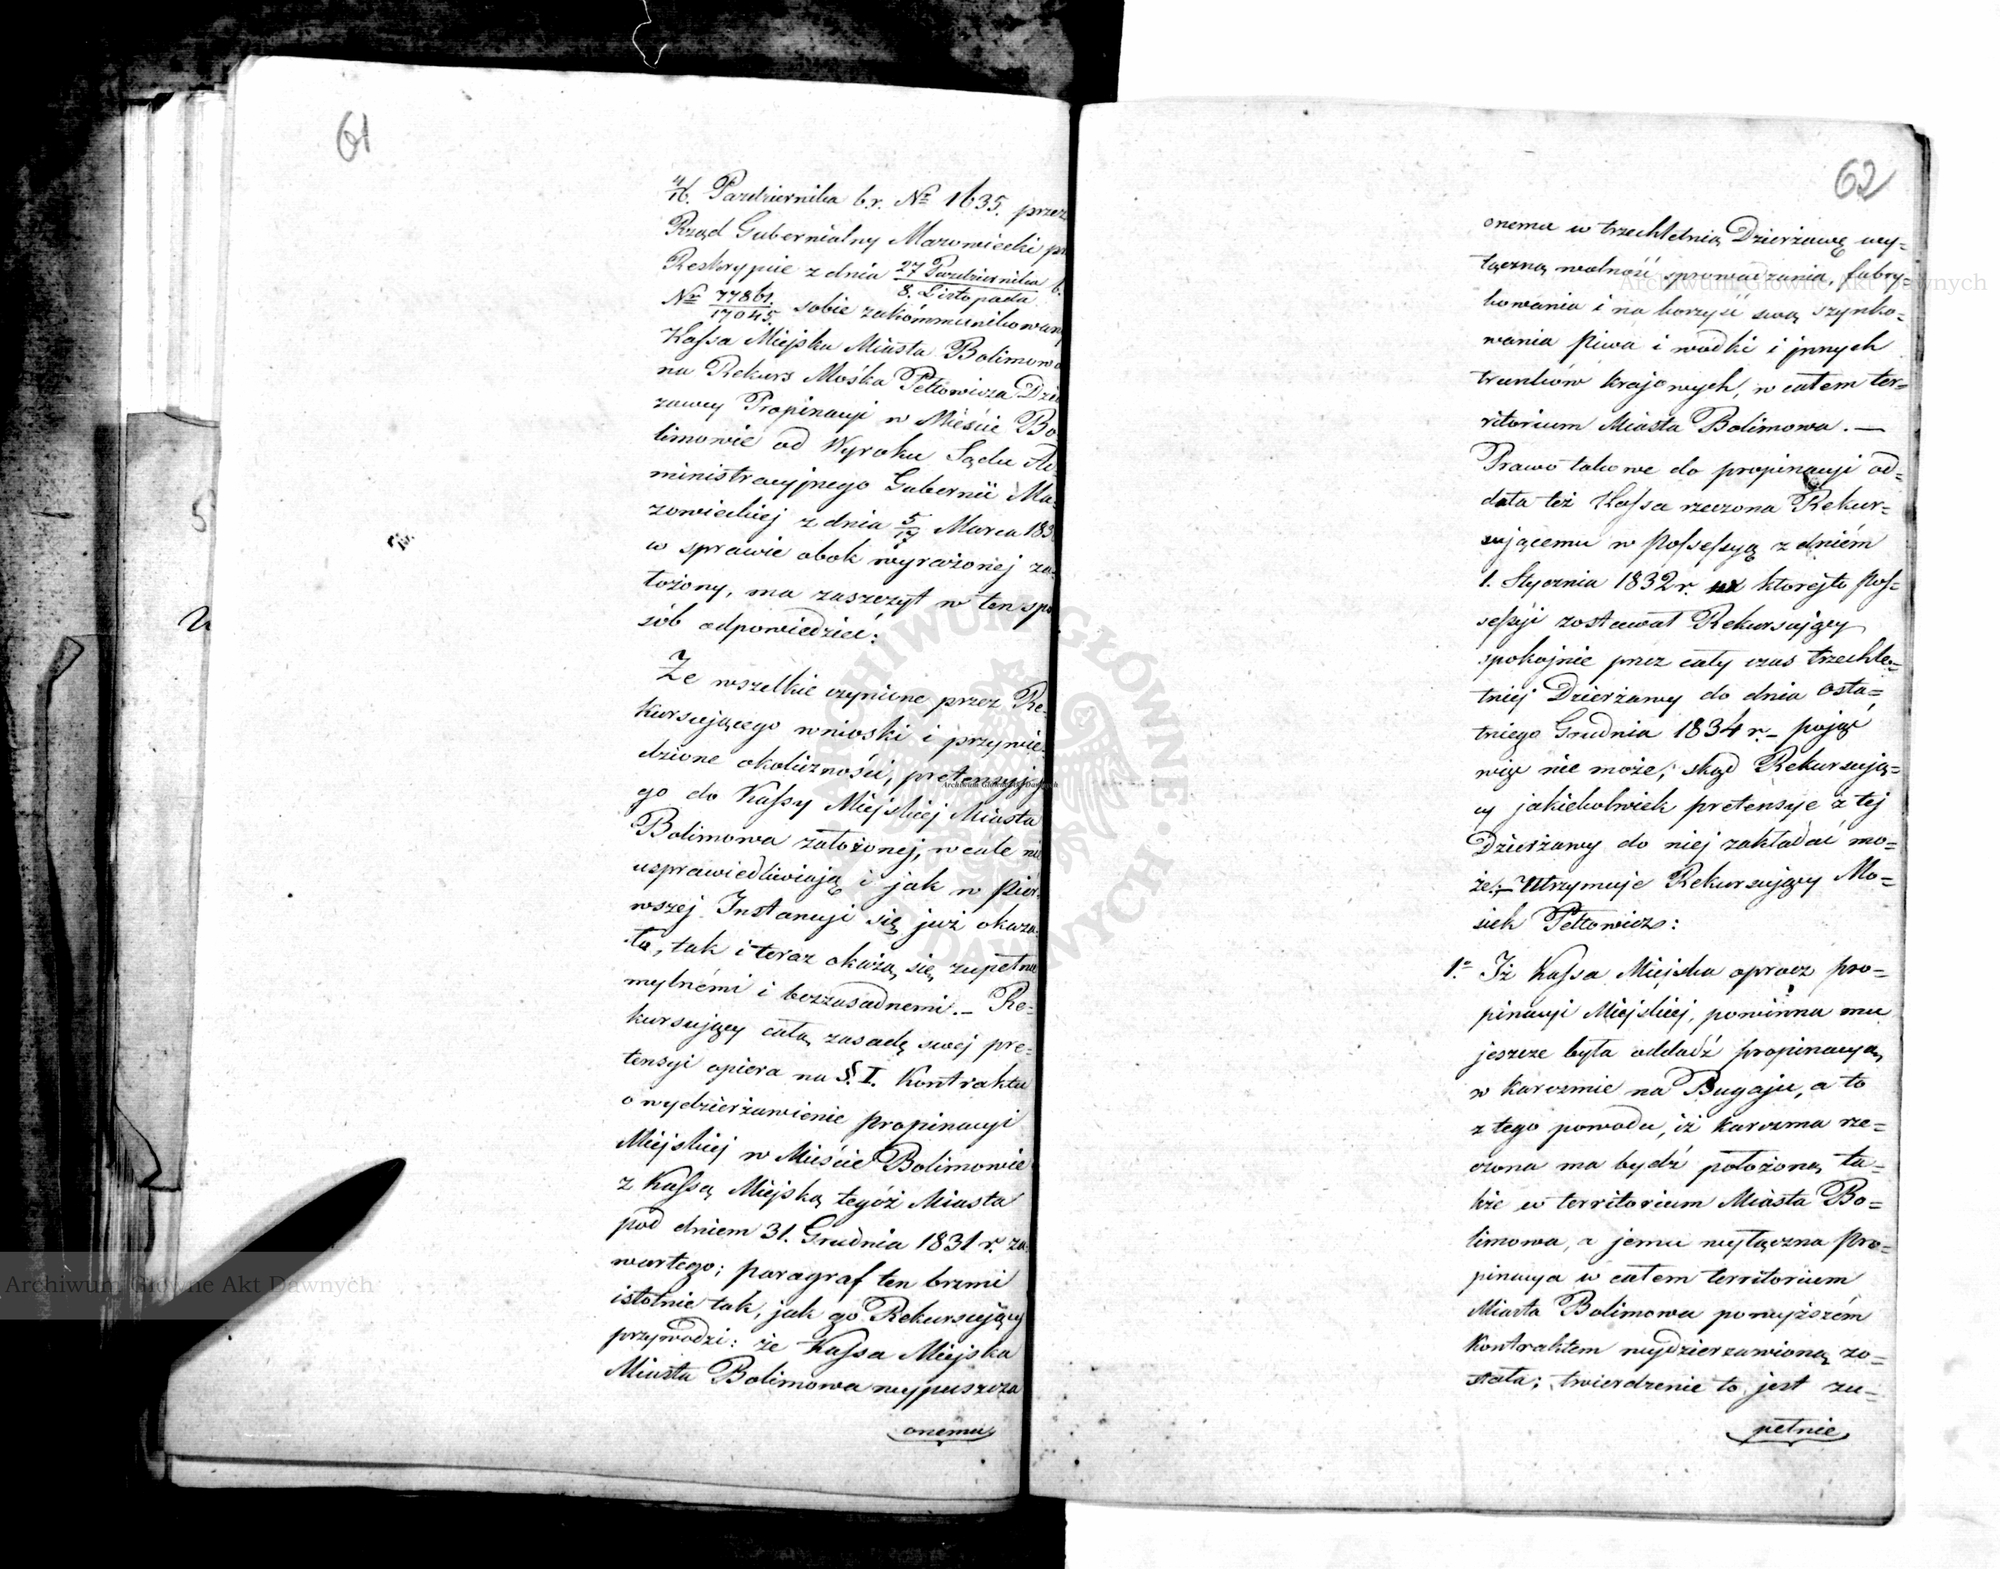 61
4/16. Października b.r. Nr 1635. przez
Rząd Gubernialny Mazowiecki pr
Reskrypcie z dnia 27 Października / 8. Listopada b.
Nr 77861. / 17045. sobie zakómmunikowany
Kassa Miejska Miasta Bolimowa
na Rekurs Mośka Pełtowicza Dzie
rzawcy Propinacyi w Mieście Bo
limowie od Wyroku Sądu Ad
ministracyjnego Gubernii Ma=
zowieckiej z dnia 5/17 Marca 183
w sprawie obok wyrażonej za=
łożony, ma zaszczyt w ten spo
sób odpowiedzieć:
Że wszelkie czynione przez Re=
kursującego wnioski i przywie
dzione okoliczności, pretensyi je
go do Kassy Miejskiej Miasta
Bolimowa założonej, wcale nie
usprawiedliwiają i jak w pier
wszej Instancyi się już okaza=
ło, tak i teraz okażą się zupełnie
mylnémi i bezzasadnemi. – Re=
kursujący całą zasadę swej pre=
tensyi opiera na §. I. Kontraktu
o wydzierżawienie propinacyi
Miejskiej w Mieście Bolimowie
z Kassą Miejską tegóż Miasta
pod dniem 31. Grudnia 1831 r. za=
wartego; paragraf ten brzmi
istotnie tak, jak go Rekursujący
przywodzi: że Kassa Miejska
Miasta Bolimowa wypuszcza
onemu
62
onemu w trzechletnią Dzierżawę wy=
łączną wolność sprowadzania, fabry=
kowania i na korzyść swą szynko=
wania piwa i wodki i jnnych
trunków krajowych, w całem ter=
ritorium Miasta Bolimowa. —
Prawo takowe do propinacyi od=
dała też Kassa rzeczona Rekur=
sującemu w Possessyą z dniém
1. Stycznia 1832 r. w ktorejto Pos=
sessyi zostawał Rekursujący
spokojnie przez cały czas trzechle=
tniej Dzierżawy do dnia osta=
tniego Grudnia 1834 r. – pojąć
więc nie może, skąd Rekursują=
cy jakiekolwiek pretensye z tej
Dzierżawy do niej zakładać mo=
że; – Utrzymuje Rekursujący Mo=
siek Pełtowicz:
1.° Iż Kassa Miejska oprócz pro=
pinacyi Miejskiej, powinna mu
jeszcze była oddadź propinacyą
w karczmie na Bugaju, a to
z tego powodu, iż karczma rze=
czona ma bydź położoną ta=
kże w territorium Miasta Bo=
limowa, a jemu wyłączna pro=
pinacya w całem territorium
Miasta Bolimowa powyższém
Kontraktem wydzierzawioną zo=
stała; twierdzenie to jest zu=
pełnie
Archiwum Główne Akt Dawnych
Archiwum Główne Akt Dawnych
Archiwum Główne Akt Dawnych
ARCHIWUM GŁÓWNE AKT DAWNYCH